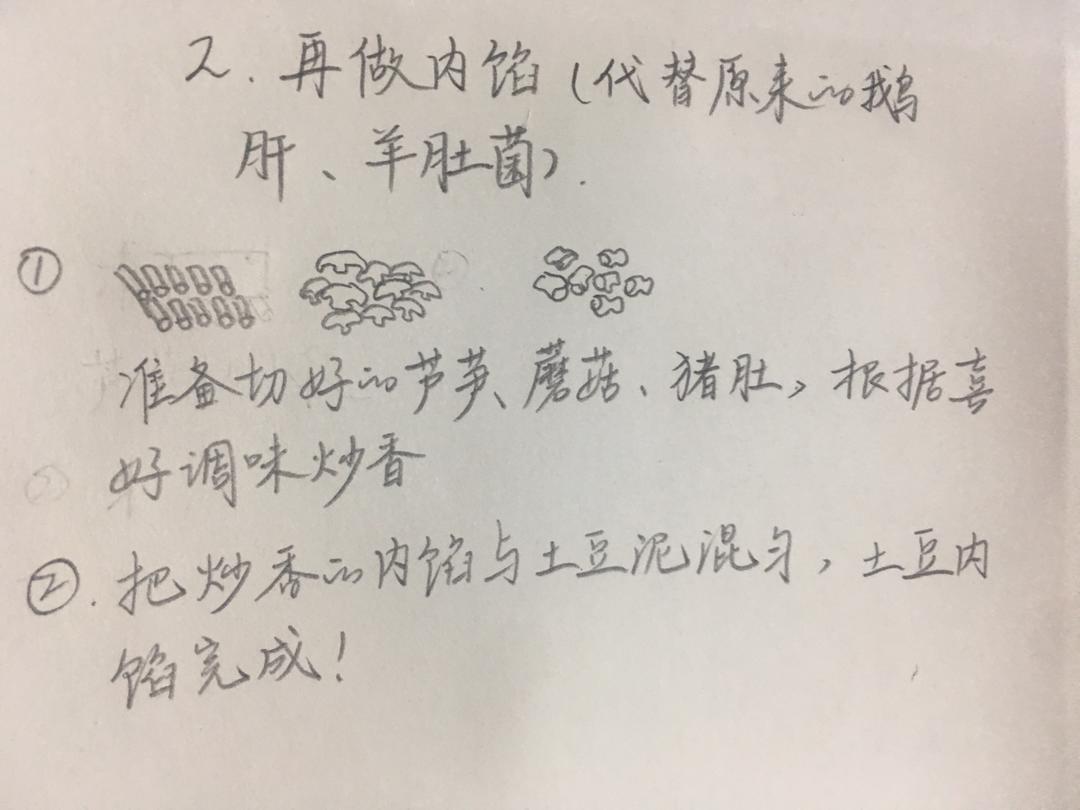 2. 再做内馅(代替原来的鹅
肝、羊肚菌).
①
准备切好的芦笋、蘑菇、猪肚,根据喜
好调味炒香
②. 把炒香的内馅与土豆泥混匀,土豆内
馅完成!